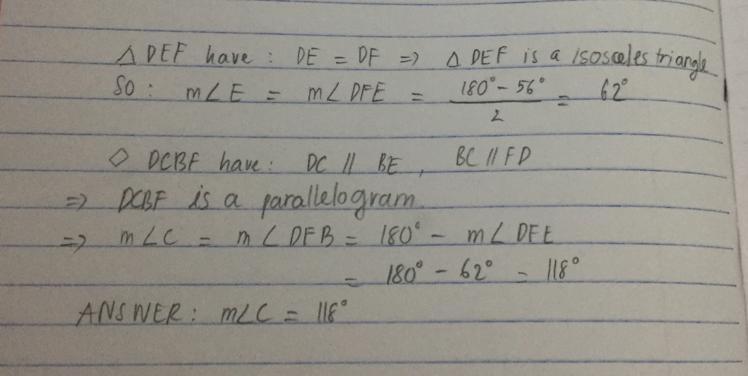 △ DEF have : DE = DF => △ DEF is a isosceles triangle
So : m∠E = m∠DFE = (180° - 56°)/2 = 62°
◇ DCBF have : DC // BE , BC // FD
=> DCBF is a parallelogram.
=> m∠C = m∠DFB = 180° - m∠DFE
= 180° - 62° = 118°
ANSWER : m∠C = 118°